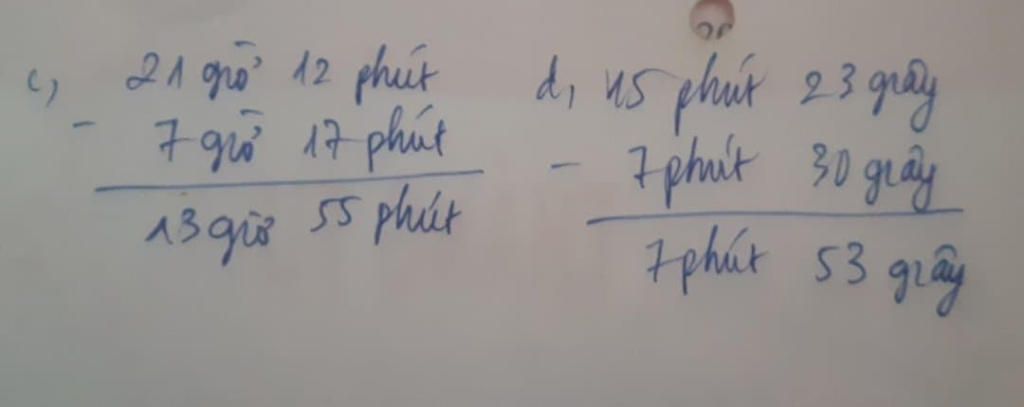 c, 21 giờ 12 phút
- 7 giờ 17 phút
13 giờ 55 phút
d, 15 phút 23 giây
- 7 phút 30 giây
7 phút 53 giây